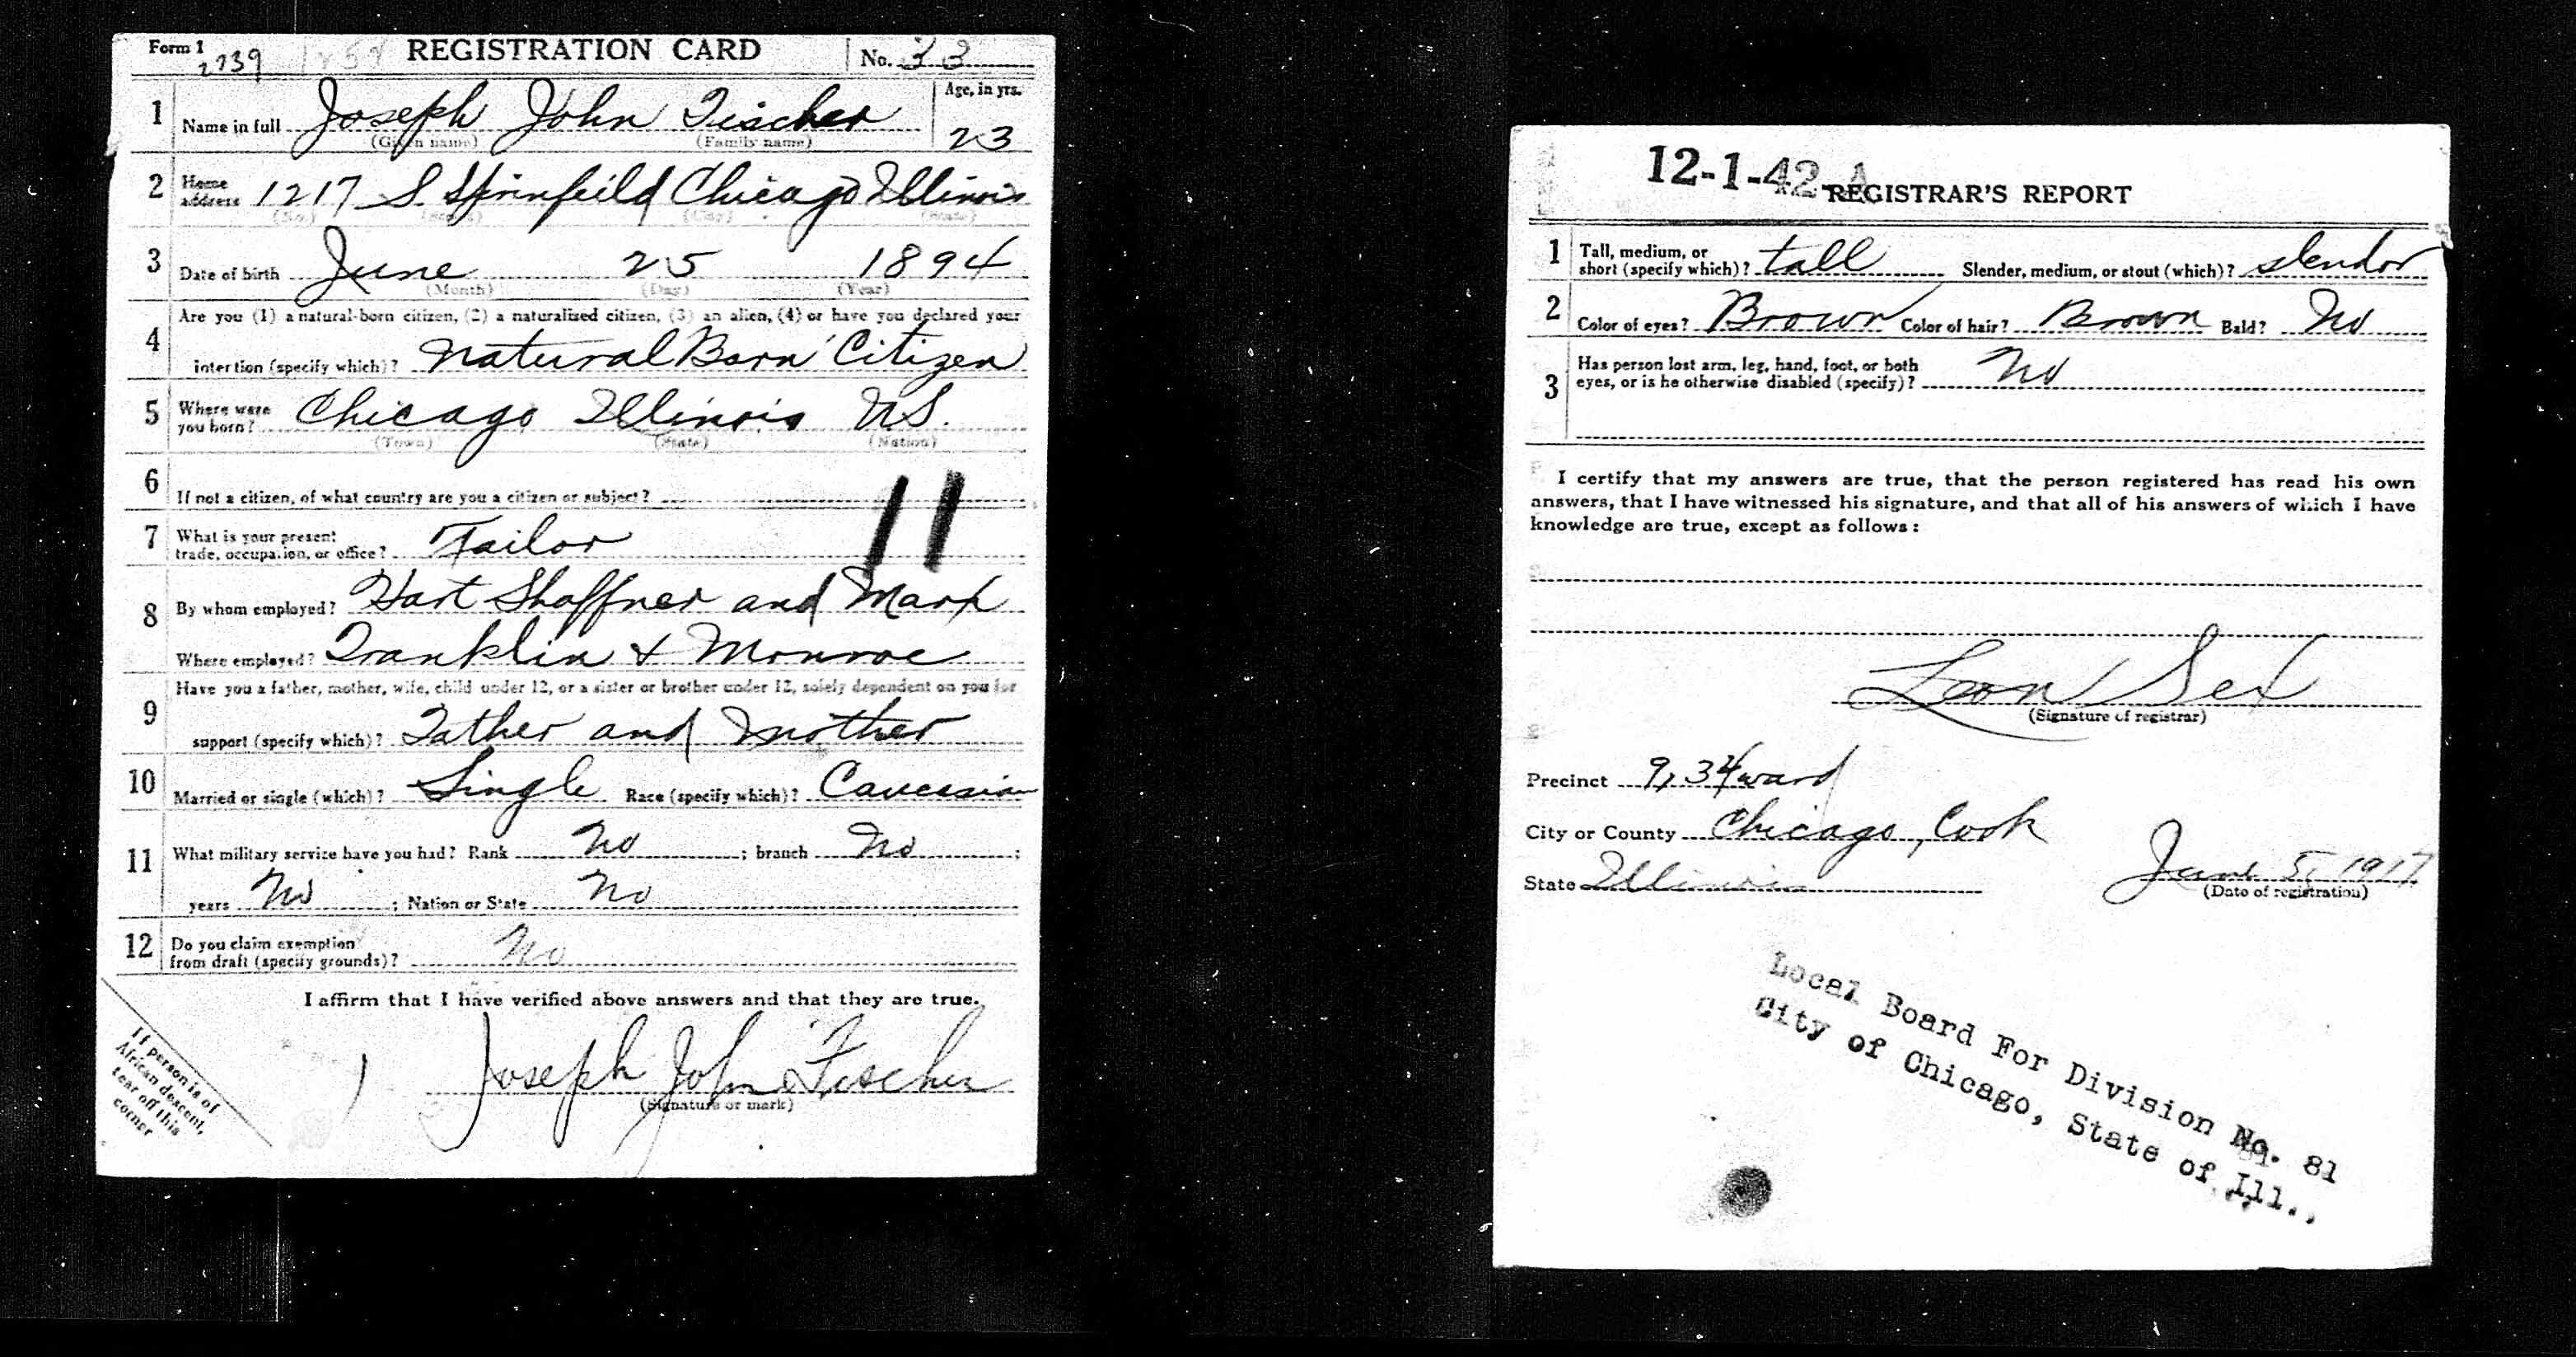 Form 1 REGISTRATION CARD No. 33
2739
1 Name in full Joseph John Fischer Age, in yrs. 23
(Given name) (Family name)
2 Home address 1217 S. Sprinfeild Chicago Illinois
(No.) (Street) (City) (State)
3 Date of birth June 25 1894
(Month) (Day) (Year)
4 Are you (1) a natural-born citizen, (2) a naturalized citizen, (3) an alien, (4) or have you declared your
intention (specify which)? Natural Born Citizen
5 Where were you born? Chicago Illinois U.S.
(Town) (State) (Nation)
6 If not a citizen, of what country are you a citizen or subject?
11
7 What is your present trade, occupation, or office? Tailor
8 By whom employed? Hart Shaffner and Marx
Where employed? Franklin & Monroe
9 Have you a father, mother, wife, child under 12, or a sister or brother under 12, solely dependent on you for
support (specify which)? Father and Mother
10 Married or single (which)? Single Race (specify which)? Caucasian
11 What military service have you had? Rank No ; branch No ;
years No ; Nation or State No
12 Do you claim exemption from draft (specify grounds)? No
I affirm that I have verified above answers and that they are true.
Joseph John Fischer
(Signature or mark)
If person is of
African descent,
tear off this
corner
12-1-42-A
REGISTRAR'S REPORT
1 Tall, medium, or short (specify which)? tall Slender, medium, or stout (which)? slendor
2 Color of eyes? Brown Color of hair? Brown Bald? No
3 Has person lost arm, leg, hand, foot, or both
eyes, or is he otherwise disabled (specify)? No
I certify that my answers are true, that the person registered has read his own
answers, that I have witnessed his signature, and that all of his answers of which I have
knowledge are true, except as follows:
Leon Sex
(Signature of registrar)
Precinct 9, 34 ward
City or County Chicago, Cook
State Illinois June 5, 1917
(Date of registration)
Local Board For Division No. 81
City of Chicago, State of Ill.,